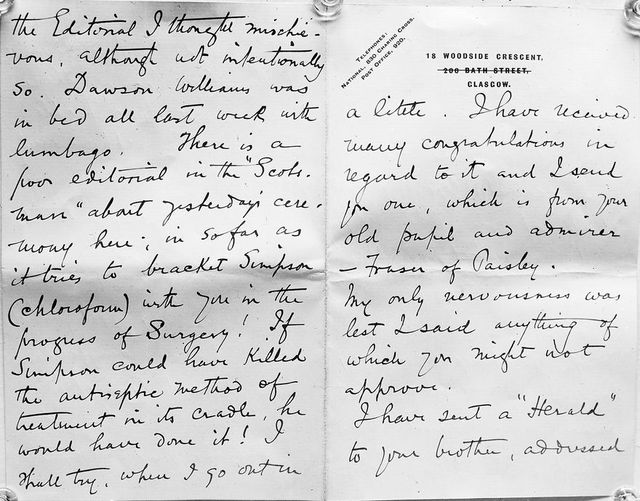 the Editorial I thought mischie-
vous, although not intentionally
so. Dawson Williams was
in bed all last week with
lumbago. There is a
poor editorial in the "Scots-
man" about yesterday's cere-
mony here; in so far as
it tries to bracket Simpson
(chloroform) with you in the
progress of Surgery! If
Simpson could have killed
the antiseptic method of
treatment in its cradle, he
would have done it! I
shall try, when I go out in
TELEPHONES:
NATIONAL, 830 CHARING CROSS.
POST OFFICE, 920.
18 WOODSIDE CRESCENT,
206 BATH STREET,
GLASGOW.
a little. I have received
many congratulations in
regard to it and I send
you one, which is from your
old pupil and admirer
— Fraser of Paisley.
My only nervousness was
lest I said anything of
which you might not
approve.
I have sent a "Herald"
to your brother, addressed